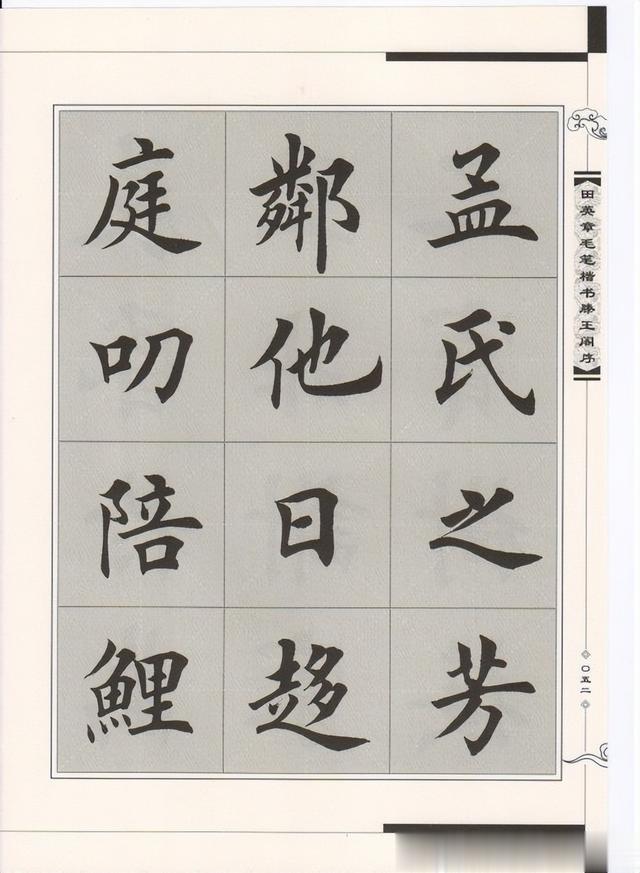 孟氏之芳
鄰他日趍
庭叨陪鯉
田英章毛笔楷书滕王阁序
〇五二